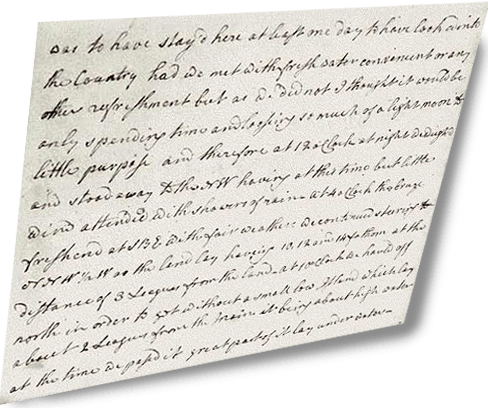 was to have stay'd here at least one day to have look'd into
the Country had we met with fresh water convenient or any
other refreshment but as we did not I thought it would be
only spending time and loosing so much of a light moon to
little purpose and therefore at 12 oClock at night we weigh'd
and stood away to the NW having at this time but little
wind attended with showers of rain - at 4 oClock the breeze
freshend at SBE with fair weather: we continued steering
NNW 1/2 W as the land lay having 10 12 and 14 fathom at the
distance of 3 Leagues from the land - at 10 oClock we hauld off
north in order to get without a small low Island which lay
about 2 Leagues from the main it being about high water
at the time we pass'd it great part of it lay under water -